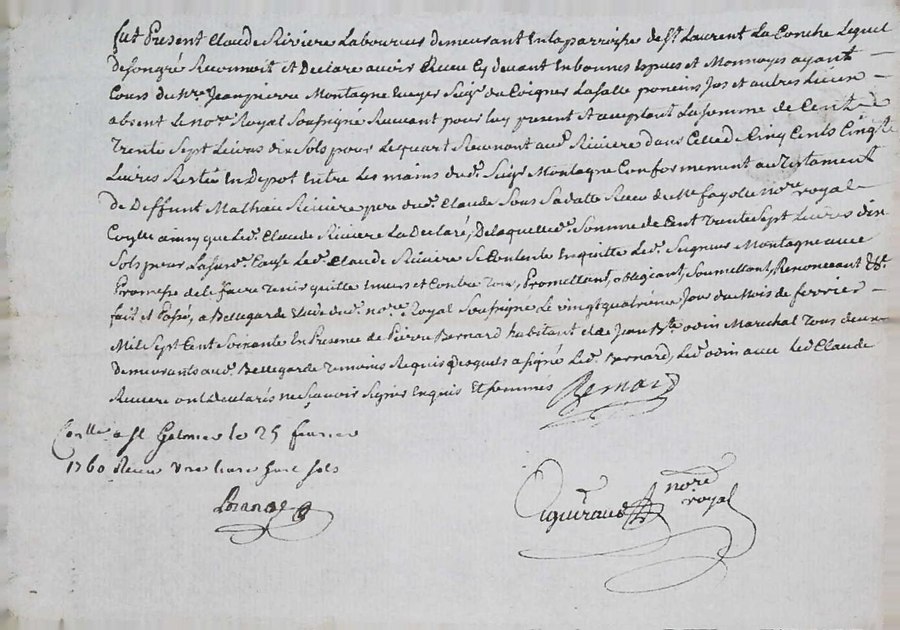 fut Present Claude Riviere Laboureur demeurant En la parroisse de St. Laurent La Conche Lequel
de son gré Reconnoit et Declare avoir Receu Cy devant En bonnes Especes et Monnoyes ayant
Cours du sr. Jean pierre Montagne Ecuyer Seigr. du Poignet Lasalle poncins Jas et autres Lieux
absent Le nore. Royal Soussigné Recevant pour luy present et acceptant La somme de Cent
Trente Sept Livres dix Sols pour Le quart Revenant aud. Riviere dans Celle de Cinq Cents Cinqte
Livres Restée En Depot Entre Les mains dud. Seigr. Montagne Conformement au Testament
De Deffunt Mathieu Riviere pere dud. Claude Sous Sa datte Receu de Me fayolle nore. royal
Coylle ainsy que Led. Claude Riviere La Declaré, De laquelle d. Somme de Cent Trente Sept Livres dix
Sols pour La susd. Cause Led. Claude Riviere Se Contente En quitte Led. Seigneur Montagne avec
Promesse de le faire tenir quitte Envers et Contre Tous, Promettant, obligeant, Soumettant, Renonceant &e.
fait et Passé, a Bellegarde Etude dud. nore. Royal Soussigné Le vingt quatrième Jour du Mois de fevrier
Mil Sept Cent Soixante En Presence de Pierre Bernard habitant et de Jean Bte. odin Marechal Tous deux
demeurants aud. Bellegarde temoins Requis desquels a signé Led. Bernard, Led. odin avec led Claude
Riviere ont declarés ne Sçavoir Signer Enquis Et sommés
Bernard
Conllé a St Galmier le 25 fevrier
1760 Receu une livre sols
nore
royal